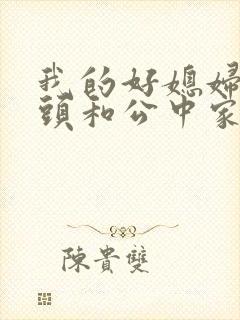 我的好媳婦
頭和公中家
陳貴雙